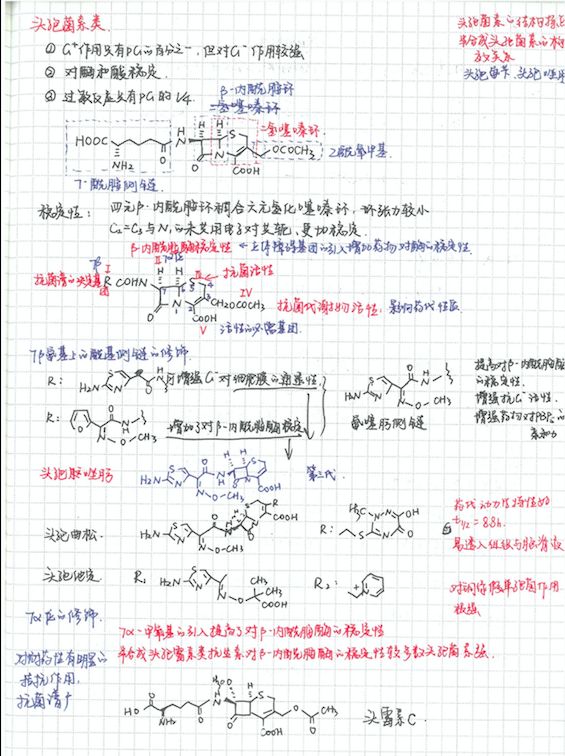 头孢菌素类
头孢菌素的结构
半合成头孢菌素的
① G⁺作用只有PG的百分之一, 但对G⁻作用较强
② 对酶和酸稳定.
头孢唑肟
β-内酰胺环
③ 过敏反应只有PG的1/4
二氢噻嗪环
二氢噻嗪环
HOOC
NH₂
H
N
H H
S
O
N
OCOCH₃
COOH
乙酰氧甲基
7-酰胺侧链
稳定性: 四元β-内酰胺环稠合六元氢化噻嗪环, 环张力较小
C₂=C₃与N₁的未共用电子对共轭, 更加稳定.
β-内酰胺酶稳定性 ← 立体障碍基团的引入增加药物对酶的稳定性.
抗菌谱的决定基团
I
R CONH
II
III
抗菌活性
IV
CH₂OCOCH₃
抗菌代谢物活性, 影响药代性质
COOH
V
活性的必需基团.
7β氨基上的酰基侧链的修饰
R:
H₂N
增强G⁻对细胞膜的通透性
R:
N
O CH₃
增加了对β-内酰胺酶稳定
H₂N
N
O CH₃
氨噻肟侧链
提高对β-内酰胺酶
的稳定性.
增强抗G⁻活性.
增强药物对PBPs的
亲和力
头孢唑肟
H₂N
O-CH₃
COOH
第三代.
头孢曲松.
H₂N
O-CH₃
R
COOH
R:
H₃C
OH
药代动力学特性好
t₁/₂ = 8.8h.
易透入组织与脑脊液
头孢他啶
R₁
H₂N
CH₃
CH₃
COOH
R₂:
对铜绿假单胞菌作用
极强
7α位的修饰.
7α-甲氧基的引入提高了对β-内酰胺酶的稳定性
半合成头孢霉素类抗生素对β-内酰胺酶的稳定性较多数头孢菌素强.
对耐药性有明显的
拮抗作用.
抗菌谱广
HO
NH₂
COOH
CH₃
头霉素C.